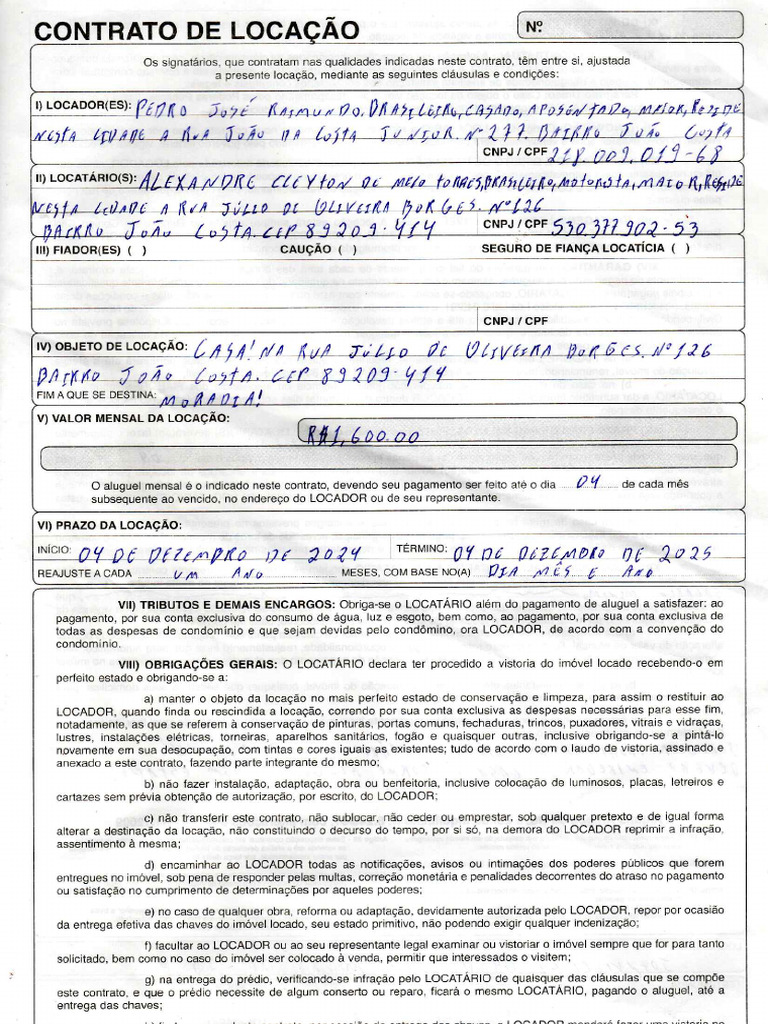 CONTRATO DE LOCAÇÃO
Nº
Os signatários, que contratam nas qualidades indicadas neste contrato, têm entre si, ajustada
a presente locação, mediante as seguintes cláusulas e condições:
I) LOCADOR(ES): PEDRO JOSÉ RAIMUNDO, BRASILEIRO, CASADO, APOSENTADO, MAIOR, RESIDE
NESTA CIDADE A RUA JOÃO DA COSTA JUNIOR. Nº 277. BAIRRO JOÃO COSTA
CNPJ / CPF 218.009.019-68
II) LOCATÁRIO(S): ALEXANDRE CLEYTON DE MELO TORRES, BRASILEIRO, MOTORISTA, MAIOR, RESIDE
NESTA CIDADE A RUA JÚLIO DE OLIVEIRA BORGES. Nº 126
BAIRRO JOÃO COSTA. CEP 89209-414 CNPJ / CPF 530.377.902-53
III) FIADOR(ES) ( ) CAUÇÃO ( ) SEGURO DE FIANÇA LOCATÍCIA ( )
CNPJ / CPF
IV) OBJETO DE LOCAÇÃO: CASA! NA RUA JÚLIO DE OLIVEIRA BORGES. Nº 126
BAIRRO JOÃO COSTA. CEP 89209-414
FIM A QUE SE DESTINA: MORADIA!
V) VALOR MENSAL DA LOCAÇÃO: R$1,600.00
O aluguel mensal é o indicado neste contrato, devendo seu pagamento ser feito até o dia 04 de cada mês
subsequente ao vencido, no endereço do LOCADOR ou de seu representante.
VI) PRAZO DA LOCAÇÃO:
INÍCIO: 04 DE DEZEMBRO DE 2024 TÉRMINO: 04 DE DEZEMBRO DE 2025
REAJUSTE A CADA UM ANO MESES, COM BASE NO(A) DIA MÊS E ANO
VII) TRIBUTOS E DEMAIS ENCARGOS: Obriga-se o LOCATÁRIO além do pagamento de aluguel a satisfazer: ao
pagamento, por sua conta exclusiva do consumo de água, luz e esgoto, bem como, ao pagamento, por sua conta exclusiva de
todas as despesas de condomínio e que sejam devidas pelo condômino, ora LOCADOR, de acordo com a convenção do
condomínio.
VIII) OBRIGAÇÕES GERAIS: O LOCATÁRIO declara ter procedido a vistoria do imóvel locado recebendo-o em
perfeito estado e obrigando-se a:
a) manter o objeto da locação no mais perfeito estado de conservação e limpeza, para assim o restituir ao
LOCADOR, quando finda ou rescindida a locação, correndo por sua conta exclusiva as despesas necessárias para esse fim,
notadamente, as que se referem à conservação de pinturas, portas comuns, fechaduras, trincos, puxadores, vitrais e vidraças,
lustres, instalações elétricas, torneiras, aparelhos sanitários, fogão e quaisquer outras, inclusive obrigando-se a pintá-lo
novamente em sua desocupação, com tintas e cores iguais as existentes; tudo de acordo com o laudo de vistoria, assinado e
anexado a este contrato, fazendo parte integrante do mesmo;
b) não fazer instalação, adaptação, obra ou benfeitoria, inclusive colocação de luminosos, placas, letreiros e
cartazes sem prévia obtenção de autorização, por escrito, do LOCADOR;
c) não transferir este contrato, não sublocar, não ceder ou emprestar, sob qualquer pretexto e de igual forma
alterar a destinação da locação, não constituindo o decurso do tempo, por si só, na demora do LOCADOR reprimir a infração,
assentimento à mesma;
d) encaminhar ao LOCADOR todas as notificações, avisos ou intimações dos poderes públicos que forem
entregues no imóvel, sob pena de responder pelas multas, correção monetária e penalidades decorrentes do atraso no pagamento
ou satisfação no cumprimento de determinações por aqueles poderes;
e) no caso de qualquer obra, reforma ou adaptação, devidamente autorizada pelo LOCADOR, repor por ocasião
da entrega efetiva das chaves do imóvel locado, seu estado primitivo, não podendo exigir qualquer indenização;
f) facultar ao LOCADOR ou ao seu representante legal examinar ou vistoriar o imóvel sempre que for para tanto
solicitado, bem como no caso do imóvel ser colocado à venda, permitir que interessados o visitem;
g) na entrega do prédio, verificando-se infração pelo LOCATÁRIO de quaisquer das cláusulas que se compõe
este contrato, e que o prédio necessite de algum conserto ou reparo, ficará o mesmo LOCATÁRIO, pagando o aluguel, até a
entrega das chaves;